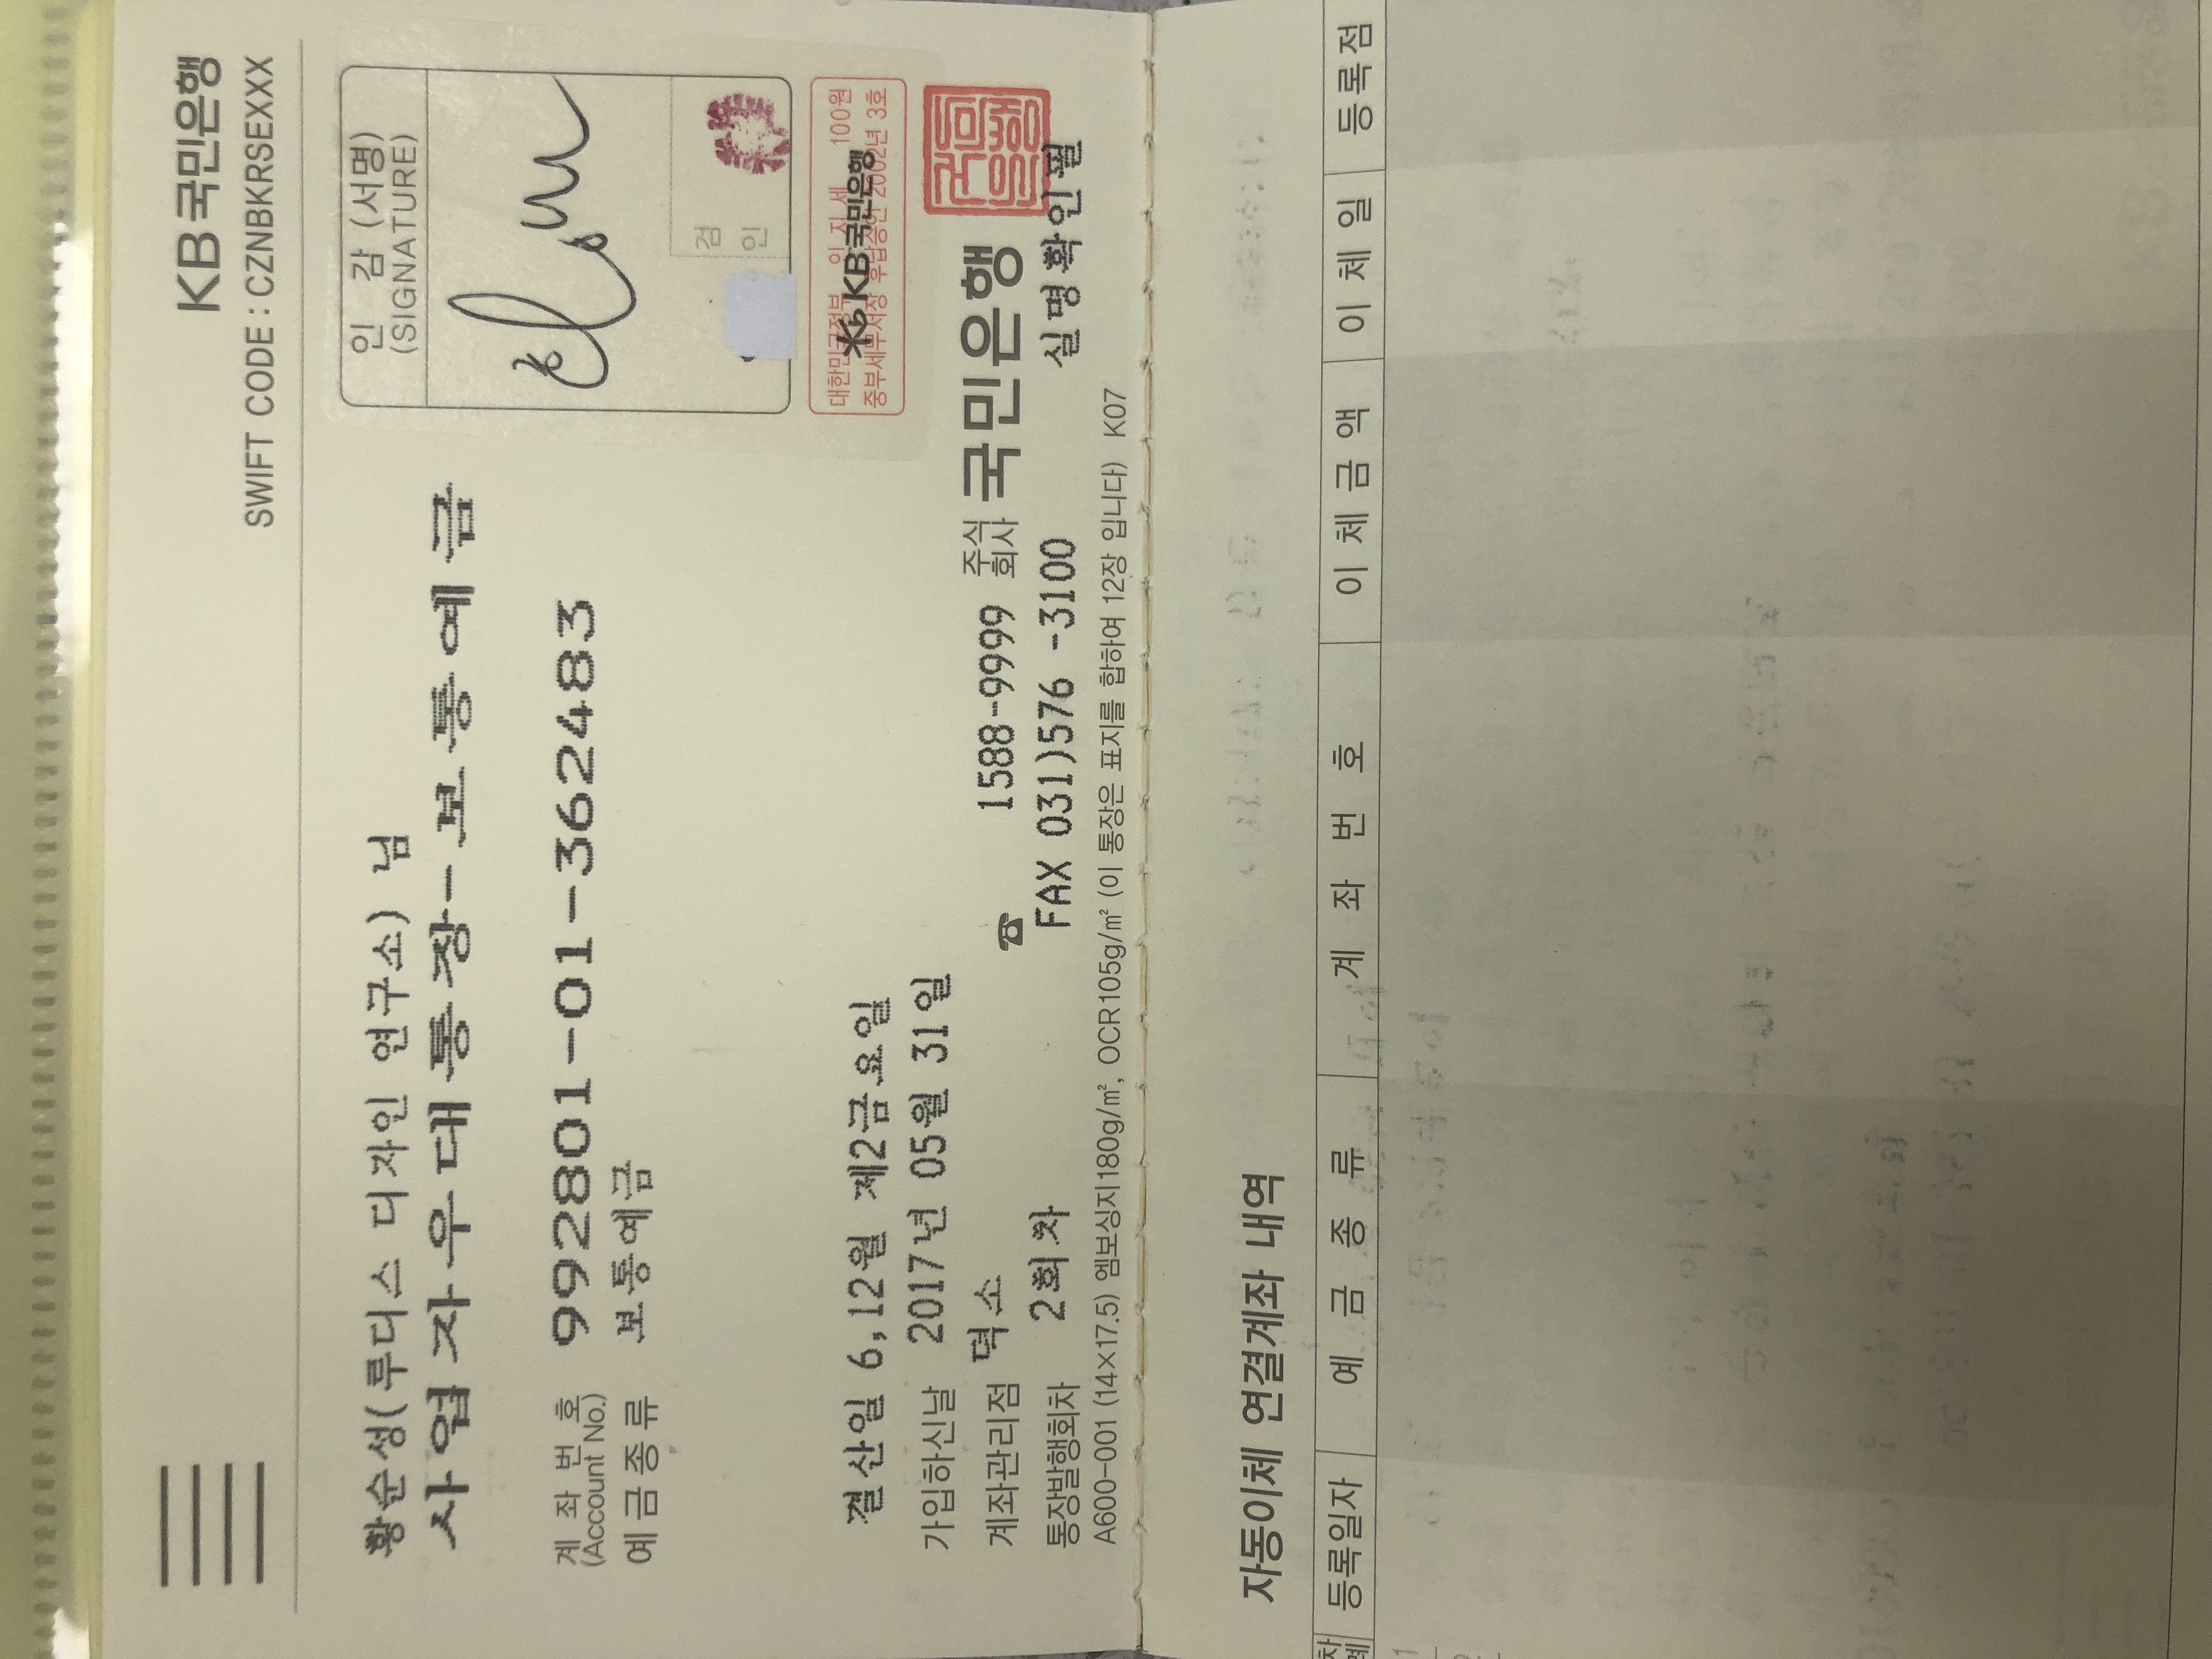 KB국민은행
SWIFT CODE : CZNBKRSEXXX
황순성(루디스 디자인 연구소) 님
사업자우대통장-보통예금
인 감 (서명)
(SIGNATURE)
검
인
계 좌 번 호
(Account No.)
992801-01-362483
예금종류 보통예금
대한민국정부 인지세 100원
KB국민은행
중부세무서장 후납승인 2002년 3호
결산일 6,12월 제2금요일
가입하신날 2017년 05월 31일
계좌관리점 덕소
☎ 1588-9999 주식회사 국민은행
통장발행회차 2회차
FAX 031)576 -3100 실명확인필
A600-001 (14×17.5) 엠보싱지180g/㎡, OCR105g/㎡ (이 통장은 표지를 합하여 12장 입니다) K07
자동이체 연결계좌 내역
차례 등록일자 예 금 종 류 계 좌 번 호 이 체 금 액 이 체 일 등록점
1
2